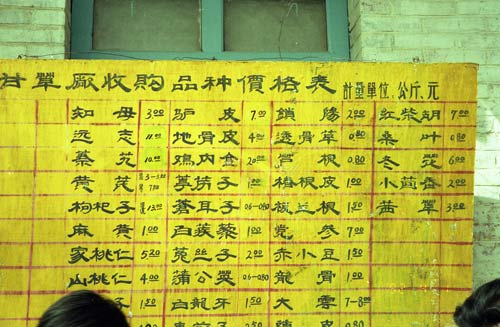 甘草厰收购品种價格表 计量单位:公斤、元
知母 3.00 驴皮 7.00 鎖陽 2.00 红柴胡 7.00
远志 11.00 地骨皮 4.00 透骨草 0.80 桑叶 0.80
秦艽 10.00 鸡内金 2.00 芦根 0.80 冬花 6.00
黄芪 葶苈子 1.00 椿根皮 1.00 小茴香 2.00
枸杞子 13.00 苍耳子 0.6-0.80 板兰根 1.50 茜草 3.00
麻黄 1.00 白蒺藜 1.00 党参 7.00
家桃仁 5.20 菟丝子 2.00 赤小豆 1.50
山桃仁 4.00 蒲公英 0.6-0.80 龍骨 1.00
子 1.50 白龙牙 1.50 大雲 7-8.00